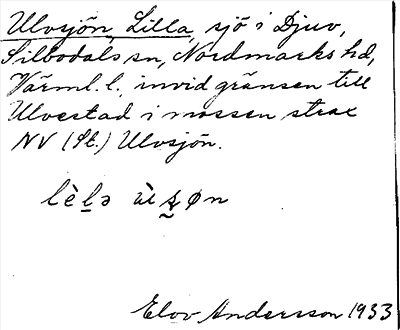 Ulvsjön, Lilla, sjö i Djuv,
Silbodals sn, Nordmarks hd,
Värml. l., invid gränsen till
Ulvestad i mossen strax
NV (St.) Ulvsjön.
Elov Andersson 1933